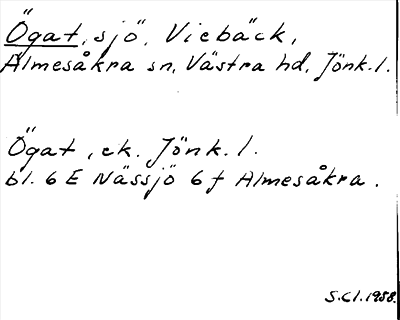 Ögat, sjö, Viebäck,
Almesåkra sn, Västra hd, Jönk. l.
Ögat, ek. Jönk. l.
bl. 6 E Nässjö 6 f Almesåkra.
S.Cl. 1958.